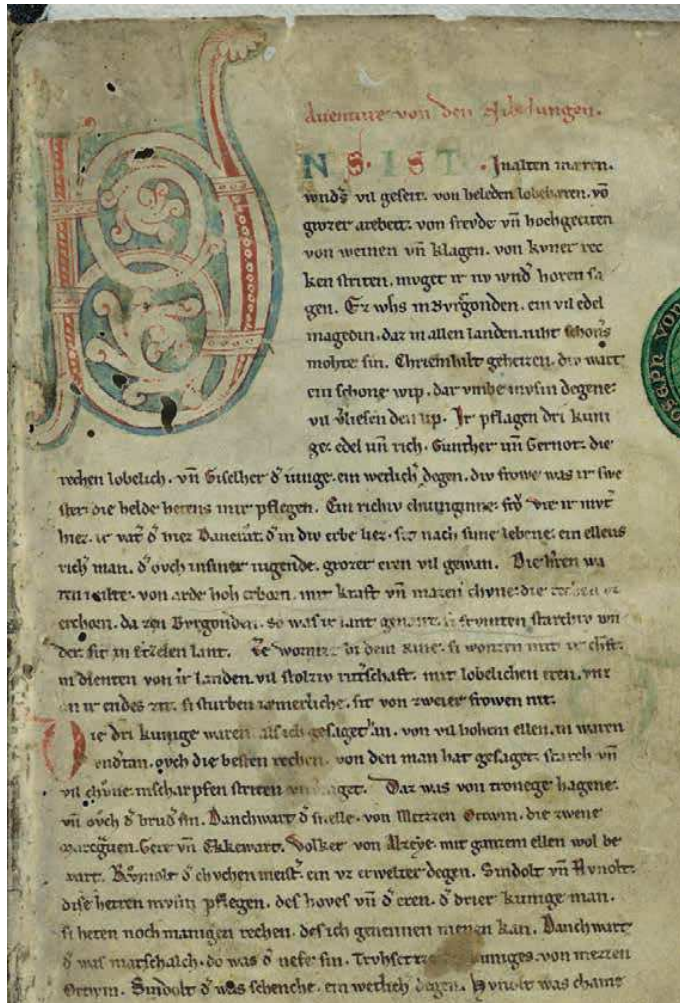 Auenture von den Nibelungen.
NS. IST. Jn alten mæren.
wnds vil geseit. von heleden lobebæren. vō
grozer arebeit. von frevde vn̄ hochgeciten
von weinen vn̄ klagen. von kvner rec
ken striten. mvget ir nv wnd horen sa
gen. Ez whs in Bvrgonden. ein vil edel
magedin. daz in allen landen. niht schoners
mohte sin. Chriemhilt geheizen. div wart
ein schone wip. dar vmbe mvsin degene
vil vliesen den lip. Jr pflagen dri kuni
ge. edel vn̄ rich. Gunther vn̄ Gernot. die
rechen lobelich. vn̄ Giselher d iunge. ein wetlich degen. div frowe was ir swe
ster. die helde hetens inir pflegen. Ein richiv chuniginne. frō vte ir mvt
hiez. ir vat d hiez Dancrat. d in div erbe liez. sit nach sime lebene. ein ellens
rich man. d ovch in siner iugende. grozer eren vil gewan. Die hren wa
ren milte. von arde hoh erborn. mit kraft vn̄ mazen chvne. die rechen vz
erchorn. da zen Bvrgonden. so was ir lant genant. si frvmten starchiv wn
der. sit in Etzelen lant. Ze wormze bi dem Rine. si wonten mit ir chft.
in dienten von ir landen. vil stolziv ritschaft. mit lobelichen eren. vnz
an ir endes zit. si sturben iæmerliche. sit von zweier frowen nit.
Die dri kunige waren. als ich gesaget han. von vil hohem ellen. in waren
vndtan. ovch die besten rechen. von den man hat gesaget. starch vn̄
vil chvne. in scharpfen striten vnvzaget. Daz was von tronege hagene.
vn̄ ovch d brud sin. Danchwart d snelle. von Mezzen Ortwin. die zwene
marcgven. Gere vn̄ Ekkewart. Volker von Alzeye. mit ganzem ellen wol be
wart. Rvmolt d chvchen meist. ein vz erwelter degen. Sindolt vn̄ Hvnolt.
dise herren mvsin pflegen. des hoves vn̄ d eren. d drier kunige man.
si heten noch manigen rechen. des ich genennen nienen kan. Danchwart
d was marschalch. do was d nefe sin. Trvhsetze des kuniges. von mezzen
Ortwin. Sindolt d was schenche. ein wetlich degen. Hvnolt was chame
VON